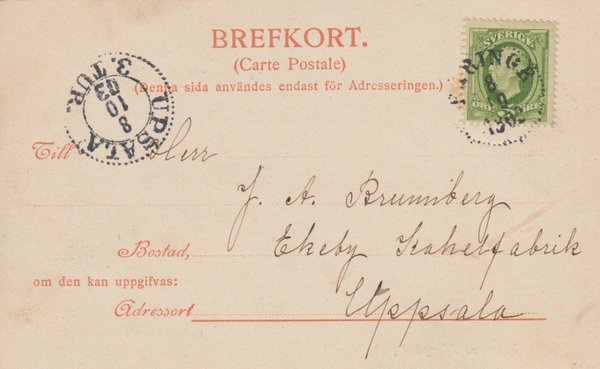 BREFKORT.
(Carte Postale)
(Denna sida användes endast för Adresseringen.)
SVERIGE
8
1903
ÖRE
UPSALA
3. TUR.
8
10
03
Till Herr
J. A. Brunnberg
Bostad, Ekeby Kakelfabrik
om den kan uppgifvas:
Adressort Uppsala